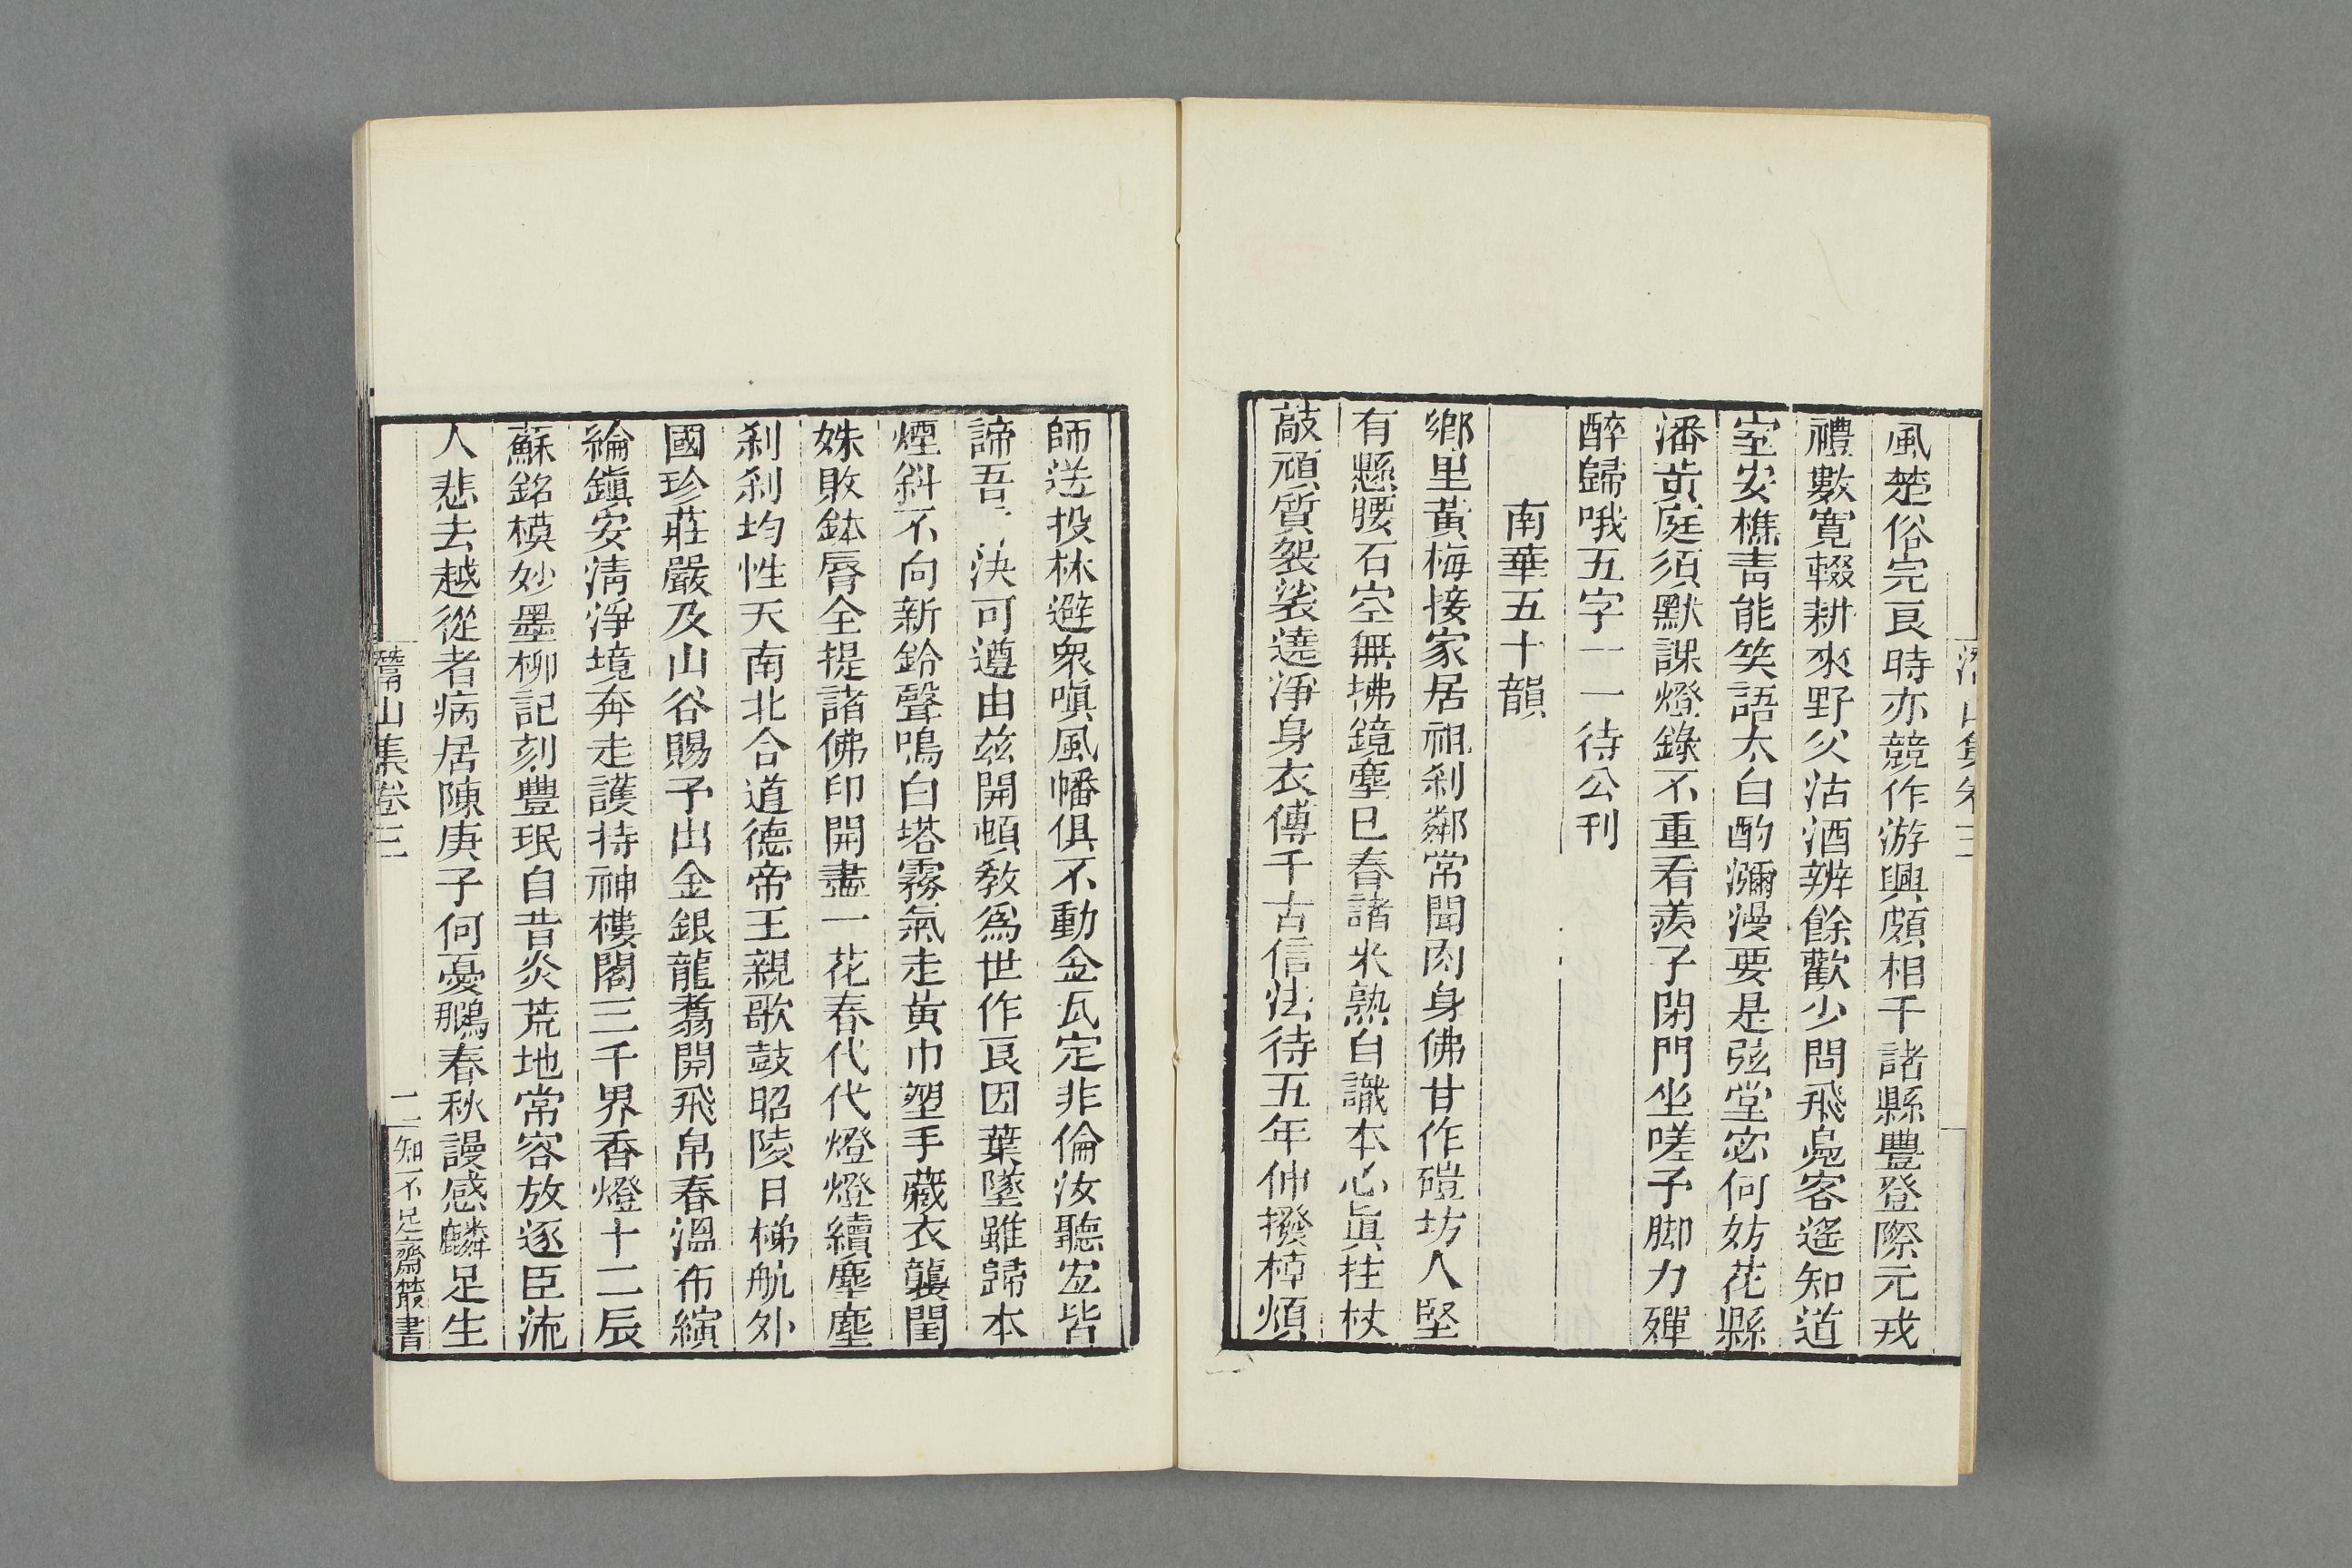 風楚俗完良時亦競作游興頗相千諸縣豐登際元戎
禮數寛輟耕來野父沽酒辨餘歡少問飛鳧客遙知道
室安樵青能笑語太白酌瀰漫要是弦堂宓何妨花縣
潘黃庭須默課燈錄不重看羨子閉門坐嗟予脚力殫
醉歸哦五字一一待公刊
南華五十韻
鄉里黃梅接家居祖刹鄰常聞肉身佛甘作磑坊人堅
有懸腰石空無拂鏡塵巳舂諸米熟自識本心眞拄杖
敲頑質袈裟遶淨身衣傳千古信法待五年伸撥棹煩
師送投林避衆嗔風幡俱不動金瓦定非倫汝聽宏皆
諦吾決可遵由茲開頓敎爲世作良因葉墜雖歸本
煙斜不向新鈴聲鳴白塔霧氣走黃巾塑手藏衣襲閨
姝敗鉢脣全提諸佛印開盡一花春代代燈燈續塵塵
刹刹均性天南北合道德帝王親歌鼓昭陵日梯航外
國珍莊嚴及山谷賜予出金銀龍翥開飛帛春溫布縯
綸鎭安淸淨境奔走護持神樓閣三千界香燈十二辰
蘇銘模妙墨柳記刻豐珉自昔炎荒地常容放逐臣流
人悲去越從者病居陳庚子何憂鵩春秋謾感麟足生
灊山集卷三
二
知不足齋叢書